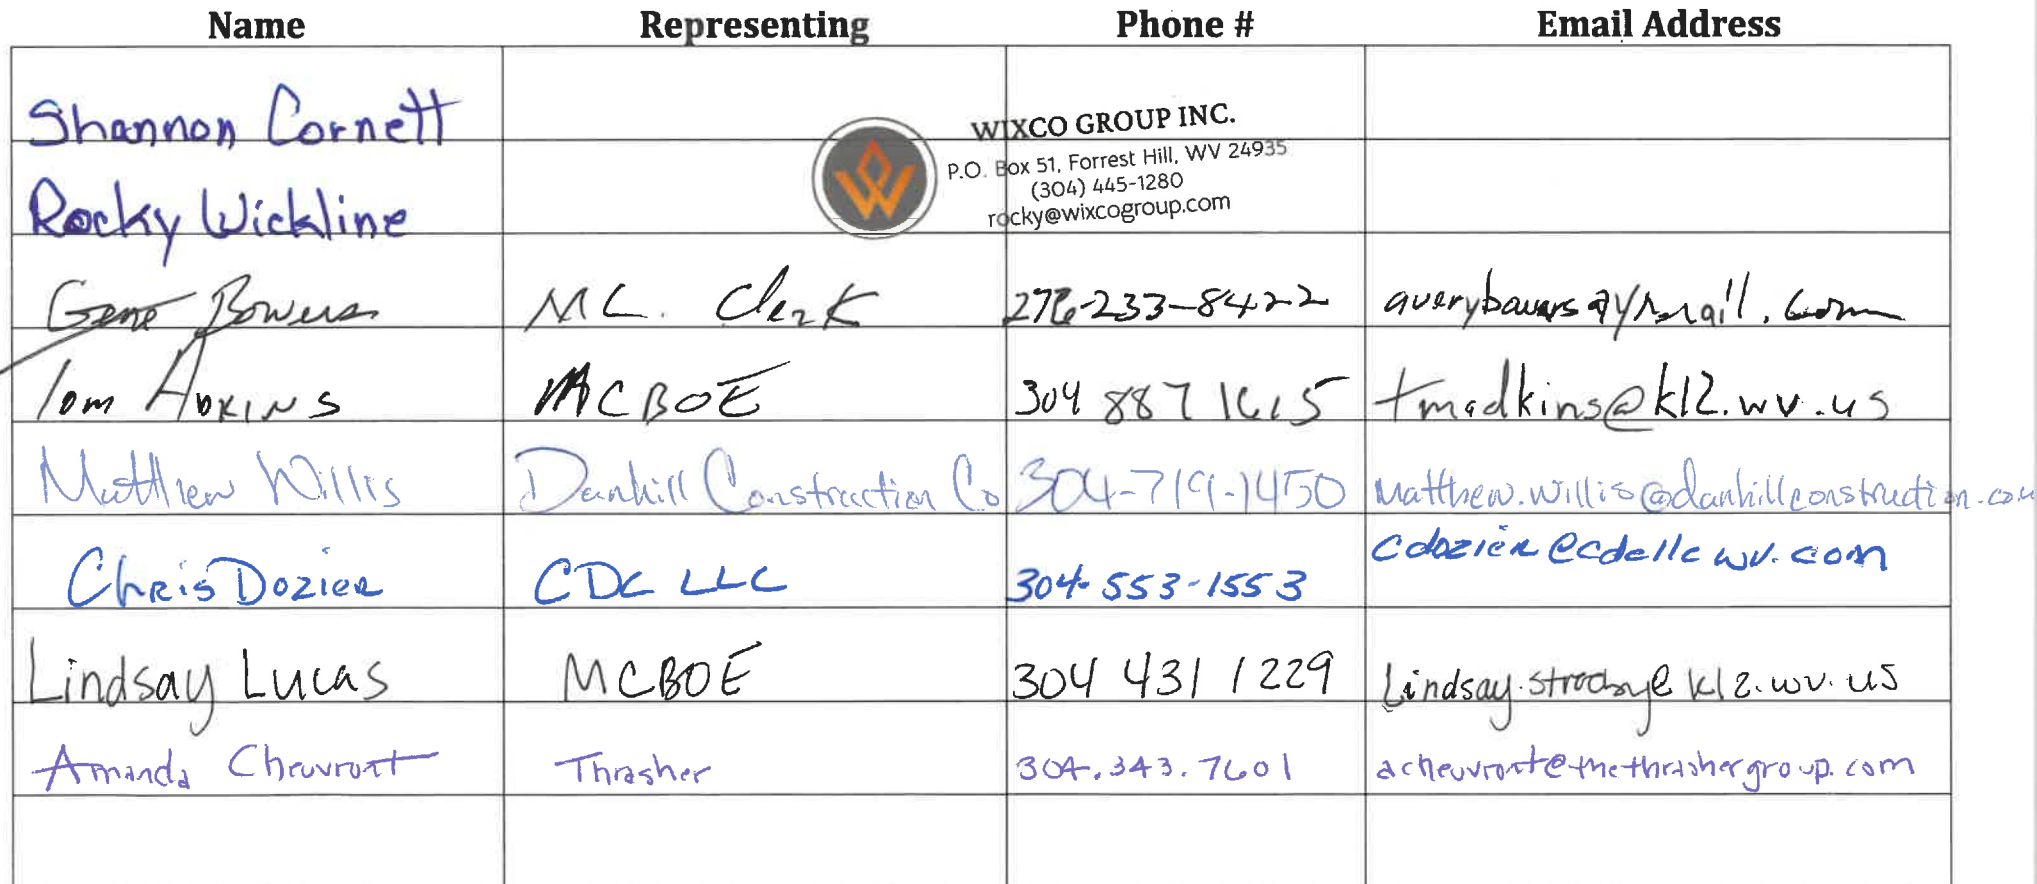 Name Representing Phone # Email Address
Shannon Cornett
WIXCO GROUP INC.
P.O. Box 51, Forrest Hill, WV 24935
(304) 445-1280
rocky@wixcogroup.com
Rocky Wickline
Gene Bowers MC. Clerk 276-233-8422 averybowers@ymail.com
Tom Adkins MCBOE 304 887 1615 tmadkins@k12.wv.us
Matthew Willis Danhill Construction Co 304-719-1450 matthew.willis@danhillconstruction.com
Chris Dozier CDC LLC 304-553-1553 cdozier@cdcllcwv.com
Lindsay Lucas MCBOE 304 431 1229
Amanda Cheuvront Thrasher 304.343.7601 acheuvront@thethrashergroup.com